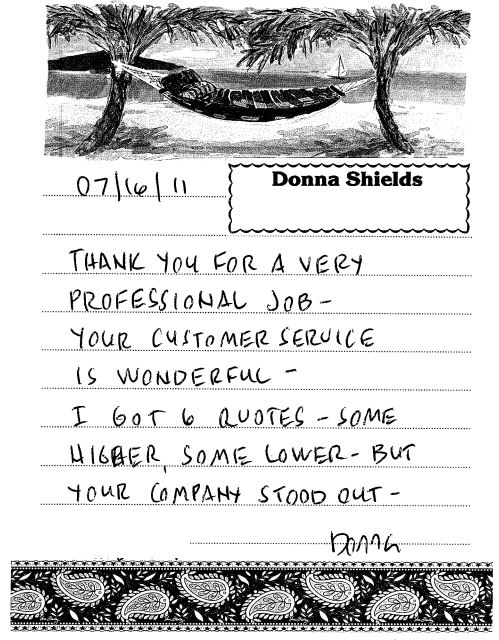 07/16/11
Donna Shields
THANK YOU FOR A VERY
PROFESSIONAL JOB -
YOUR CUSTOMER SERVICE
IS WONDERFUL -
I GOT 6 QUOTES - SOME
HIGHER, SOME LOWER - BUT
YOUR COMPANY STOOD OUT -
Donna